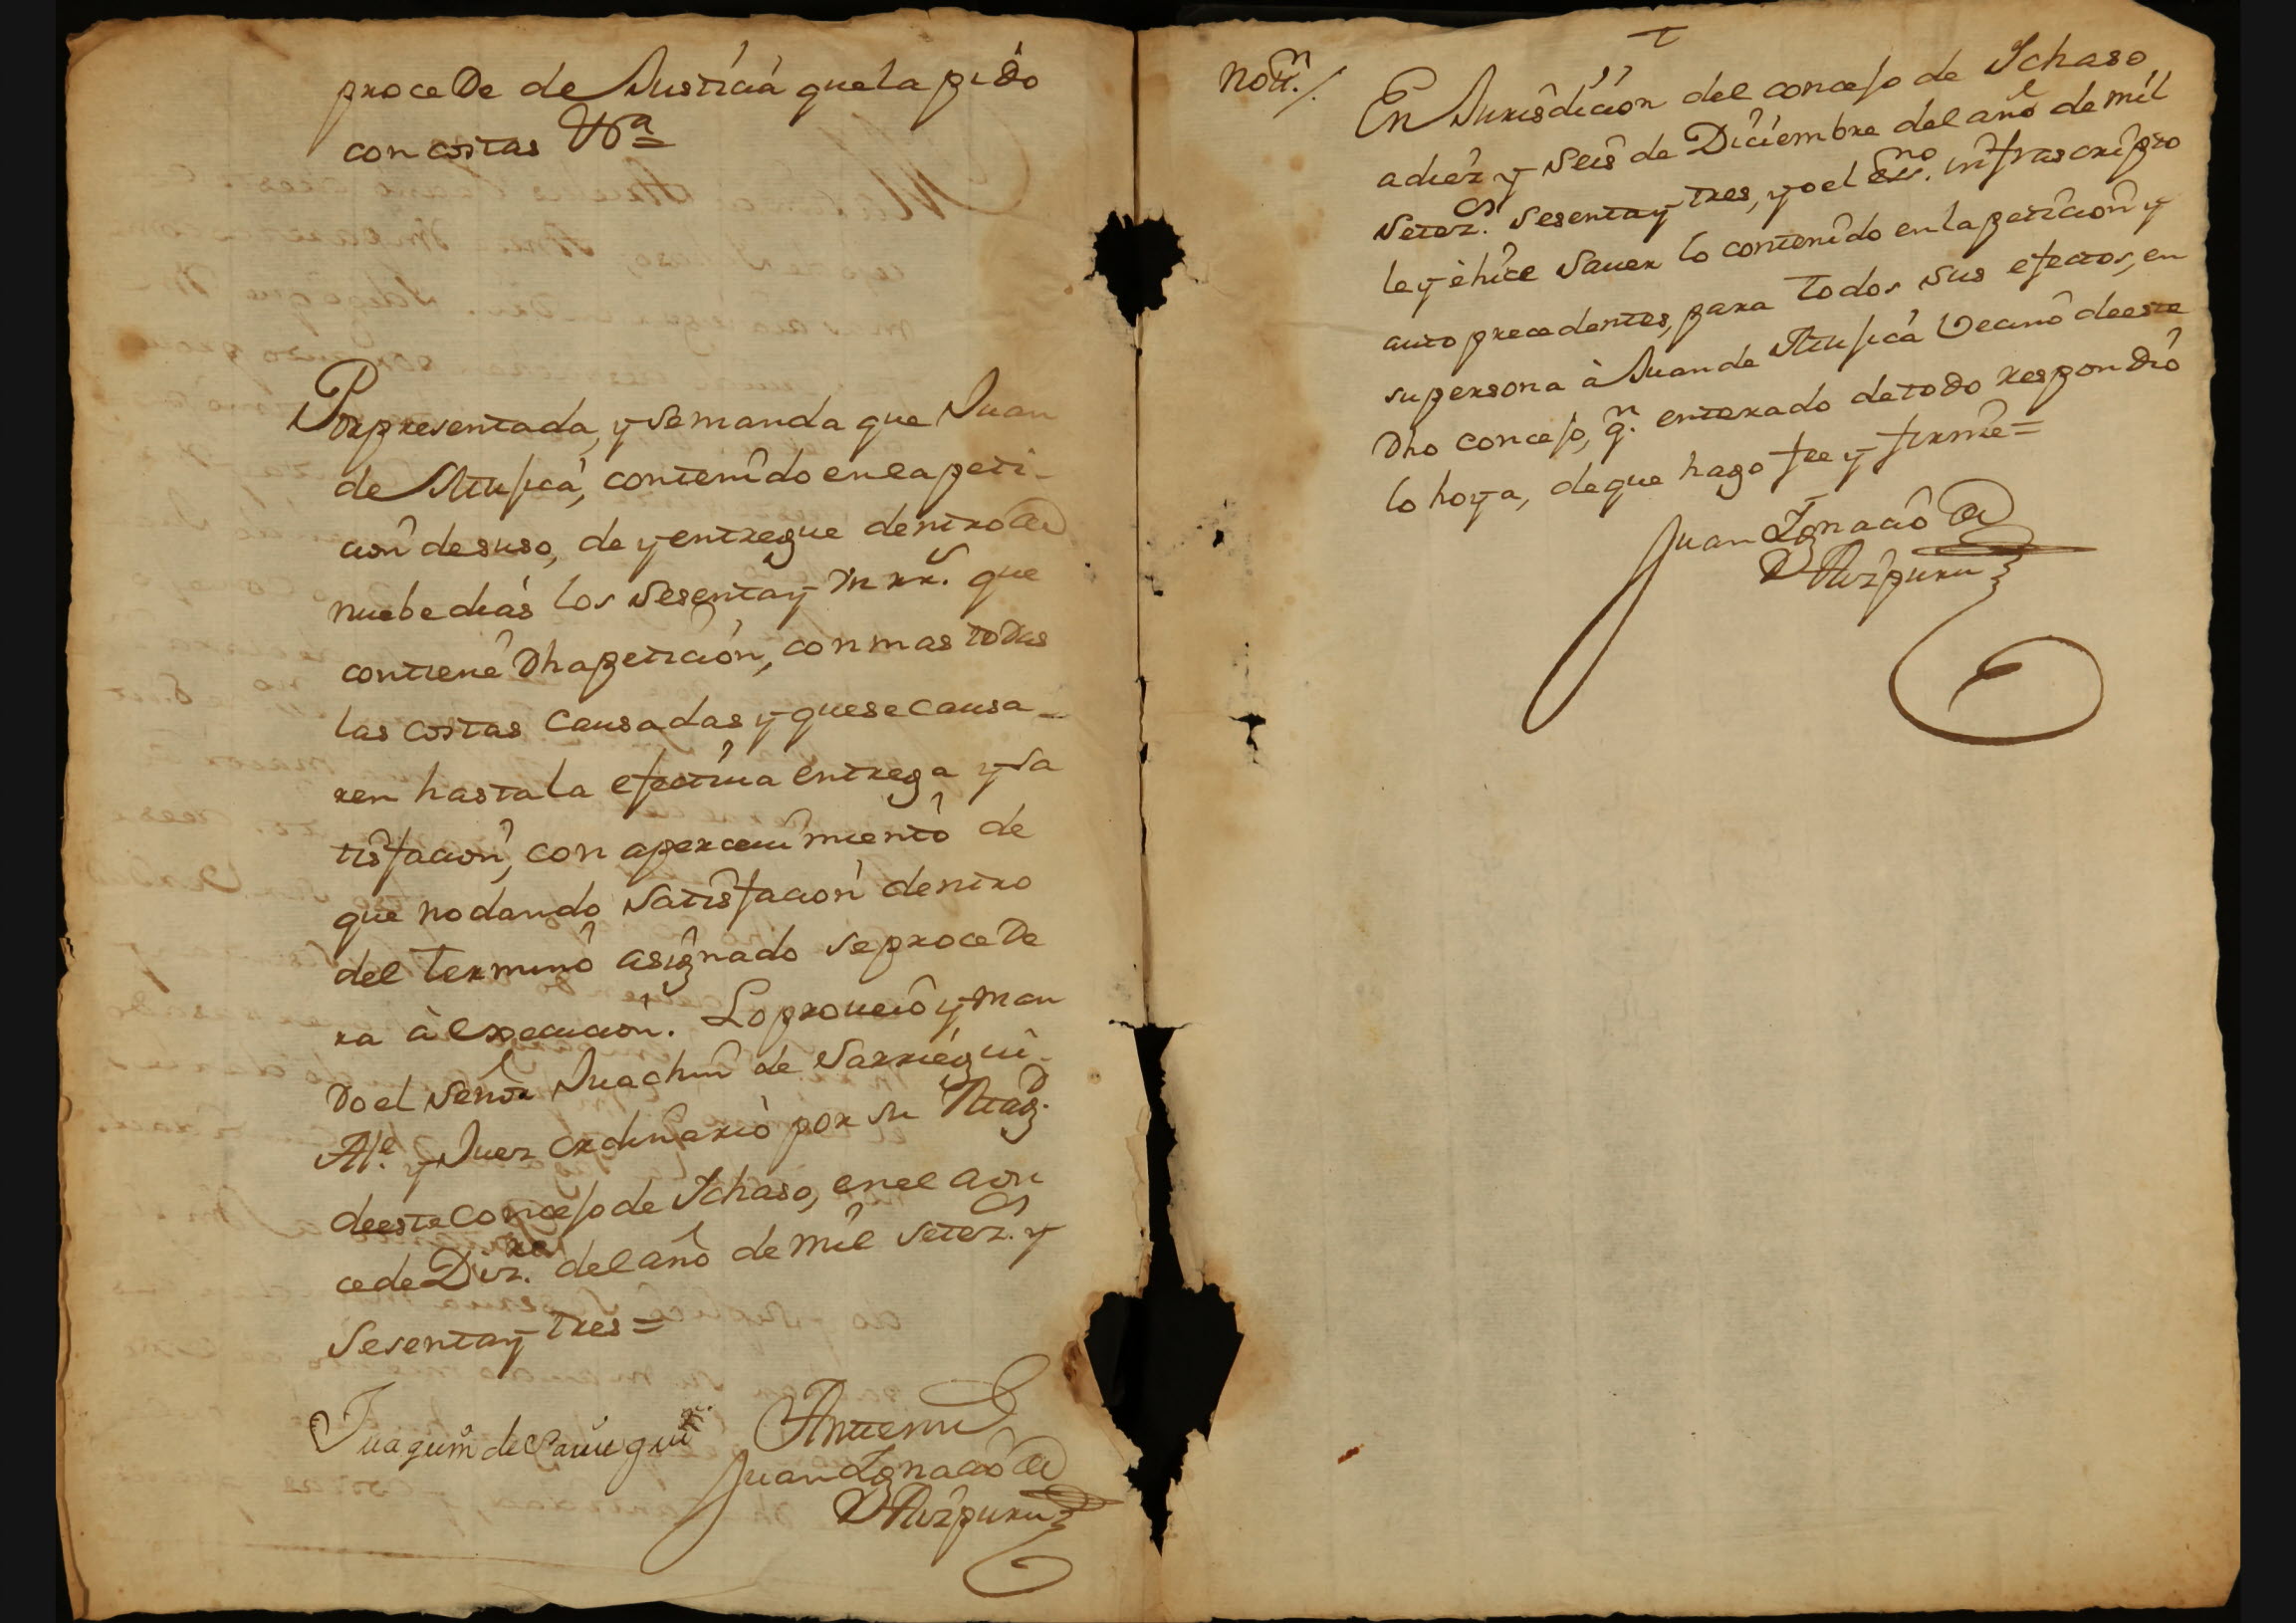 procede de Justicia que la pido
con costas Vra
Por presentada, y se manda que Juan
de Mujica, contenido en la peti-
cion de suso, de y entregue dentro de
nuebe dias los sesenta y m rrs. que
contiene Dha peticion, con mas todas
las costas causadas y que se causa-
ren hasta la efectiua entrega y sa
tisfacion, con aperceuimiento de
que no dando satisfacion dentro
del termino asignado se procede
ra à execucion. Lo proueió y man
do el Señor Juachin de Sarriegui-
Alc. y Juez ordinario por su Magd.
de este concejo de Ichaso, en el a on
ce de Dizre. del año de mil setez.s y
sesenta y tres =
Juaquin de Sarriegui
Antemi
Juan Ignacio de
Aizpuru
Notn./.
En Jurisdicion del concejo de Ichaso
a diez y seis de Diciembre del año de mil
setez.s sesenta y tres, yo el Esno. infrascripto
ley è hice sauer lo contenido en la peticion y
auto precedentes, para todos sus efectos, en
su persona à Juan de Mujica vecino de este
Dho concejo, qn. enterado de todo respondio
lo hoya, de que hago fee y firmé =
Juan Ignacio de
Aizpuru